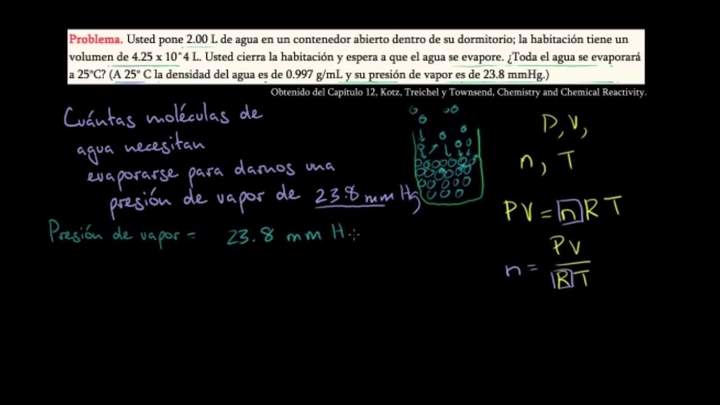 Problema. Usted pone 2.00 L de agua en un contenedor abierto dentro de su dormitorio; la habitación tiene un
volumen de 4.25 x 10^4 L. Usted cierra la habitación y espera a que el agua se evapore. ¿Toda el agua se evaporará
a 25°C? (A 25° C la densidad del agua es de 0.997 g/mL y su presión de vapor es de 23.8 mmHg.)
Obtenido del Capítulo 12, Kotz, Treichel y Townsend, Chemistry and Chemical Reactivity.
Cuántas moléculas de
agua necesitan
evaporarse para darnos una
presión de vapor de 23.8 mm Hg
Presión de vapor = 23.8 mm H
P, V,
n, T
PV = nRT
n = PV
RT